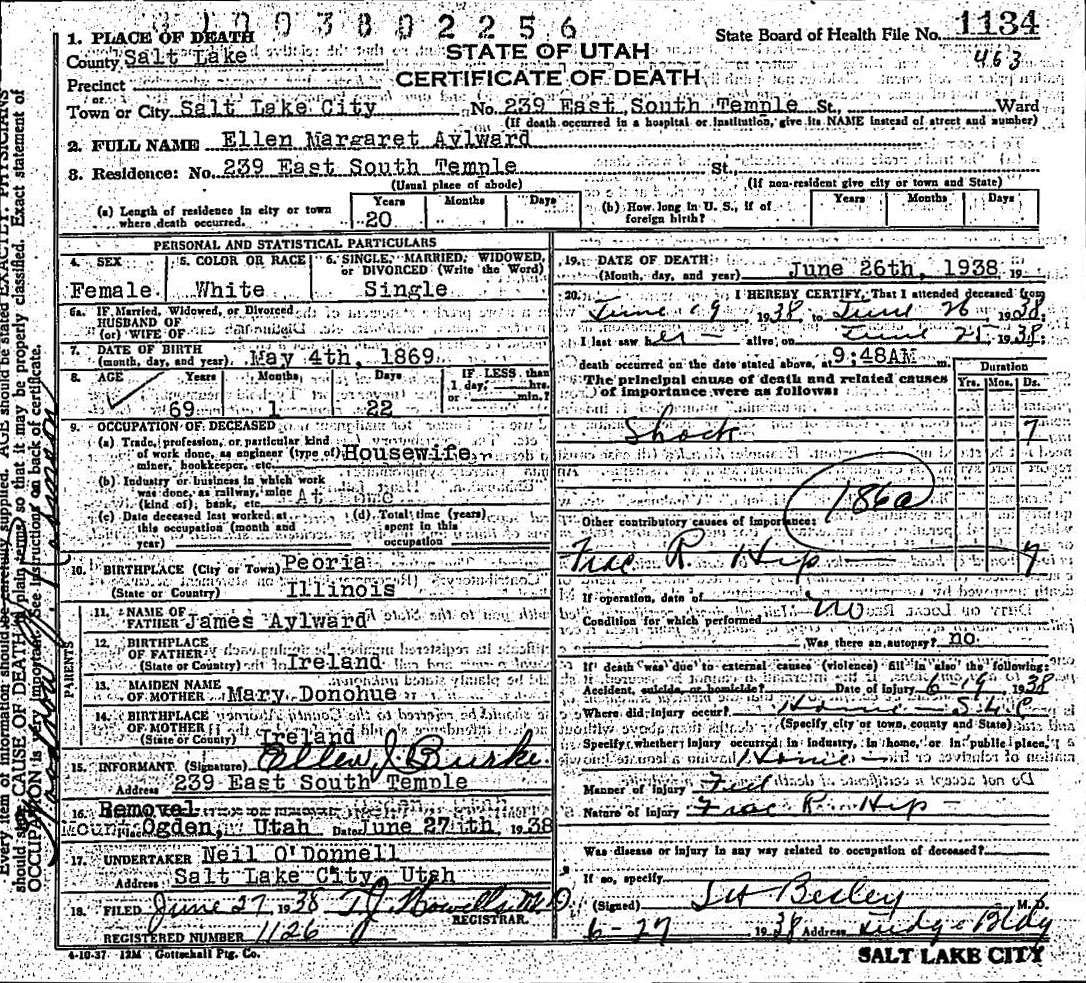 31003802256
1. PLACE OF DEATH
County Salt Lake
STATE OF UTAH
CERTIFICATE OF DEATH
State Board of Health File No. 1134
463
Precinct
or
Town or City Salt Lake City No. 239 East South Temple St., Ward
(If death occurred in a hospital or institution, give its NAME instead of street and number)
2. FULL NAME Ellen Margaret Aylward
3. Residence: No. 239 East South Temple St.
(Usual place of abode) (If non-resident give city or town and State)
(a) Length of residence in city or town where death occurred. Years 20 Months Days
(b) How long in U. S., if of foreign birth? Years Months Days
PERSONAL AND STATISTICAL PARTICULARS
4. SEX Female
5. COLOR OR RACE White
6. SINGLE, MARRIED, WIDOWED, or DIVORCED (Write the Word) Single
6a. IF Married, Widowed, or Divorced
HUSBAND OF
(or) WIFE OF
7. DATE OF BIRTH
(month, day, and year) May 4th, 1869
8. AGE Years 69 Months 1 Days 22 IF LESS than 1 day, hrs. or min.?
9. OCCUPATION OF DECEASED
(a) Trade, profession, or particular kind
of work done, as engineer (type of) Housewife
miner, bookkeeper, etc.
(b) Industry or business in which work
was done, as railway, mine
(kind of), bank, etc. At Home
(c) Date deceased last worked at
this occupation (month and
year)
(d) Total time (years)
spent in this
occupation
10. BIRTHPLACE (City or Town) Peoria
(State or Country) Illinois
PARENTS
11. NAME OF
FATHER James Aylward
12. BIRTHPLACE
OF FATHER
(State or Country) Ireland
13. MAIDEN NAME
OF MOTHER Mary Donohue
14. BIRTHPLACE
OF MOTHER
(State or Country) Ireland
15. INFORMANT (Signature) Ellen J. Burke
Address 239 East South Temple
16. Removal
Place Ogden, Utah Date June 27th, 1938
17. UNDERTAKER Neil O'Donnell
Address Salt Lake City, Utah
18. FILED June 27 1938 T J Howells M D
REGISTRAR.
REGISTERED NUMBER 1126
4-10-37 12M Gottschall Ptg. Co.
19. DATE OF DEATH
(Month, day, and year) June 26th, 1938 19
20. I HEREBY CERTIFY, That I attended deceased from
June 19 1938 to June 26 1938
I last saw her alive on June 25 1938
death occurred on the date stated above, at 9:48AM m.
The principal cause of death and related causes
of importance were as follows:
Duration
Yrs. Mos. Ds.
Shock 7
186a
Other contributory causes of importance:
Frac R. Hip 7
If operation, date of
Condition for which performed No
Was there an autopsy? no
If death was due to external causes (violence) fill in also the following:
Accident, suicide, or homicide? Date of injury 6-19 1938
Where did injury occur? Home - S L C
(Specify city or town, county and State)
Specify whether injury occurred in industry, in home, or in public place.
Home
Manner of injury Fell
Nature of injury Frac R. Hip
Was disease or injury in any way related to occupation of deceased?
If so, specify
(Signed) Besley M. D.
6-27 1938 Address Judge Bldg
SALT LAKE CITY
Every item of information should be carefully supplied. AGE should be stated EXACTLY. PHYSICIANS
should state CAUSE OF DEATH in plain terms, so that it may be properly classified. Exact statement of
OCCUPATION is very important. See instructions on back of certificate.